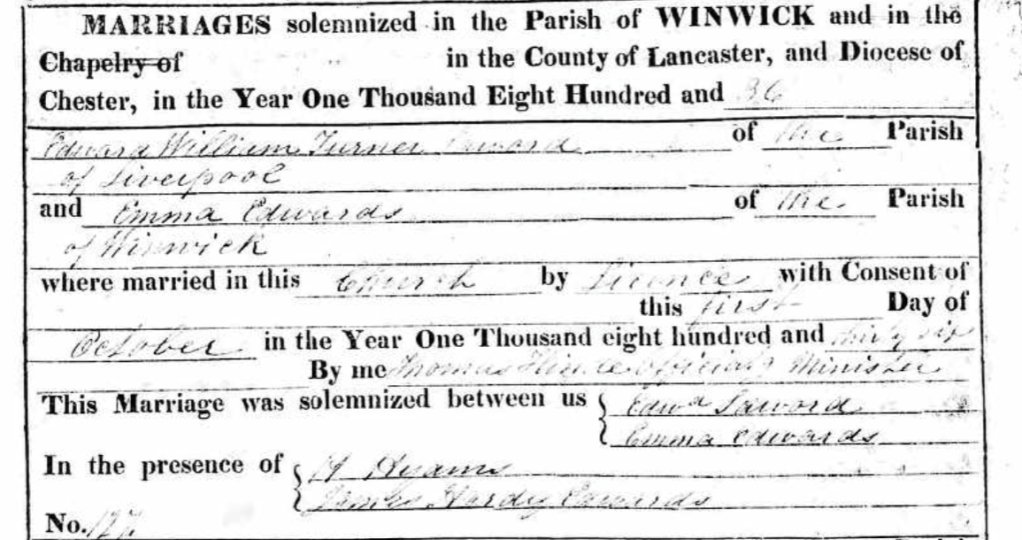 MARRIAGES solemnized in the Parish of WINWICK and in the
Chapelry of in the County of Lancaster, and Diocese of
Chester, in the Year One Thousand Eight Hundred and 36
Edward William Turner Saword of the Parish
of Liverpool
and Emma Edwards of the Parish
of Winwick
where married in this Church by Licence with Consent of
this first Day of
October in the Year One Thousand eight hundred and thirty six
By me Thomas Officiatg Minister
This Marriage was solemnized between us Edwd Saword
Emma Edwards
In the presence of H Hyams
James Hardy Edwards
No. 127.